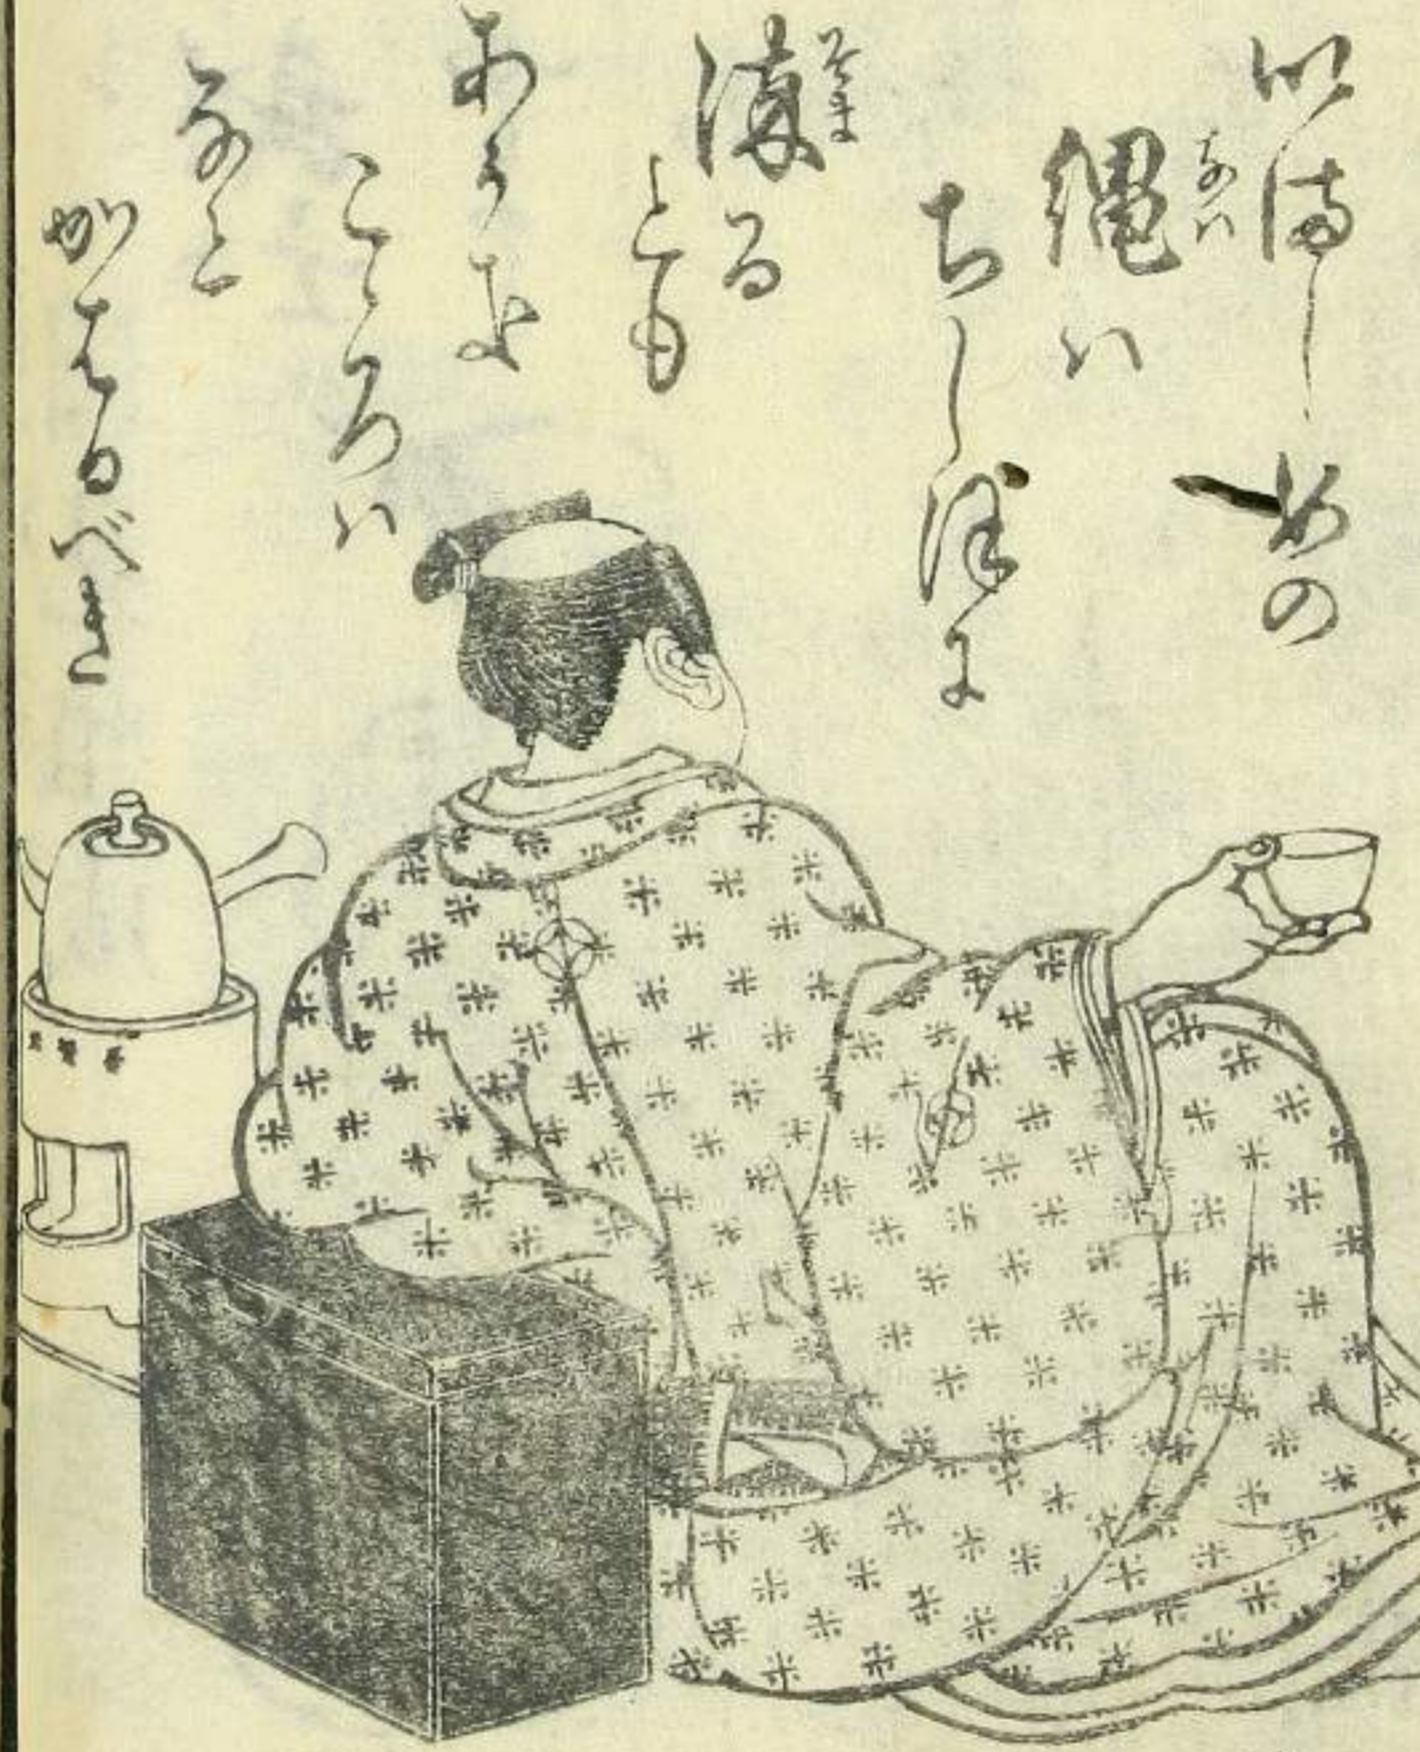 いましめの
縄ハ
なハ
ちしほに
染る
そま
とも
あかき
こゝろハ
なと
かはるべき